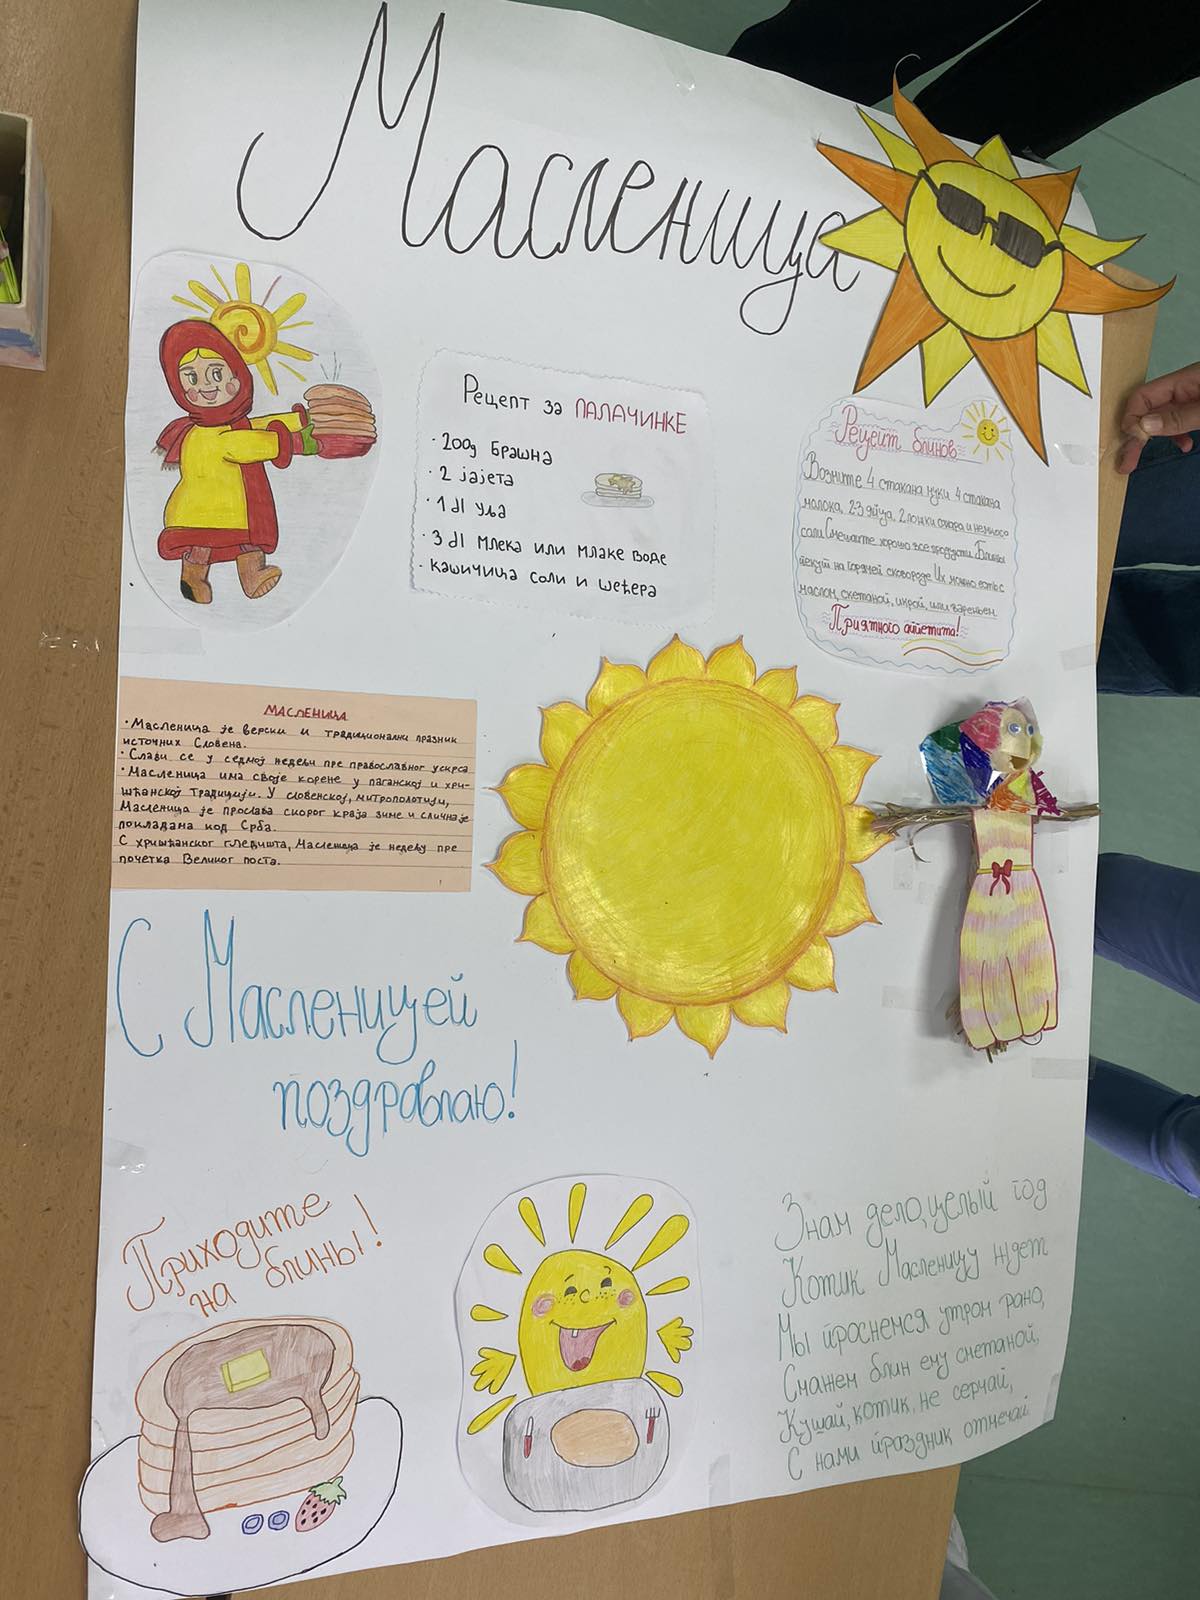 Масленица
Рецепт за ПАЛАЧИНКЕ
· 200g Брашна
· 2 јајета
· 1 dl уља
· 3 dl млека или млаке воде
· кашичица соли и шећера
Рецепт блинов
Возмите 4 стакана муки 4 стакана
молока, 2-3 яйца, 2 ложки сахара и немного
соли Смешайте хорошо все продукти. Блины
пекут на горячей сковороде Их можно есть с
маслом, сметаной, икрой, или вареньем
Приятного аппетита!
МАСЛЕНИЦА
· Масленица је верски и традиционални празник
источних Словена.
· Слави се у седмој недељи пре православног ускрса
· Масленица има своје корене у паганској и хри-
шћанској традицији. У словенској, митропологији,
Масленица је прослава скорог краја зиме и слична је
покладама код Срба.
С хришћанског гледишта, Масленица је недељу пре
почетка Великог поста.
С Масленицей
поздравлаю!
Приходите
на блины!
Знам дело, целый год
Котик Масленицу ждет
Мы проснемся утром рано,
Смажем блин ему сметаной,
Кушай, котик, не серчай,
С нами праздник отмечай